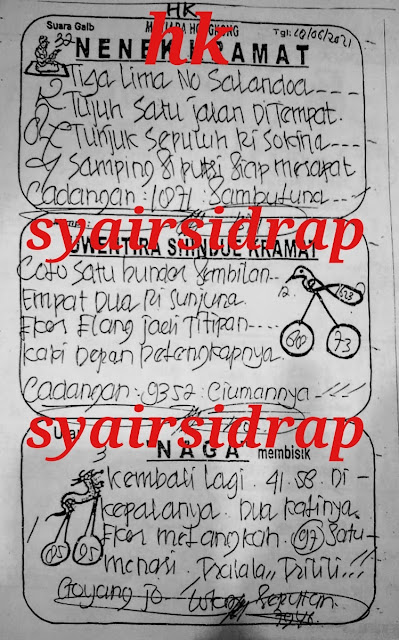 HK
hk
Suara Gaib
Tgl: 10/06/2021
NENEK KRAMAT
Tiga Lima No Salandoa
Tujuh Satu jalan DiTempat.
Tunjuk Sepuluh Ri Sokina
Samping Si putri Siap merapat
Cadangan: 1071: Sambutuna
syairsidrap
SHINDUE KRAMAT
Coto Satu bundar Sembilan
Empat Dua Ri Sunjuna
Ekor Elang jadi Titipan
kaki Depan Pelengkapnya
12.
60 73
Cadangan: 9352: Ciumannya
syairsidrap
NAGA membisik
kembali lagi. 41. 58. Di
kepalanya. Dua kakinya.
Ekor melangkah. 97 Satu
menari. Dalala,, Dililili
05 05
Goyang jo